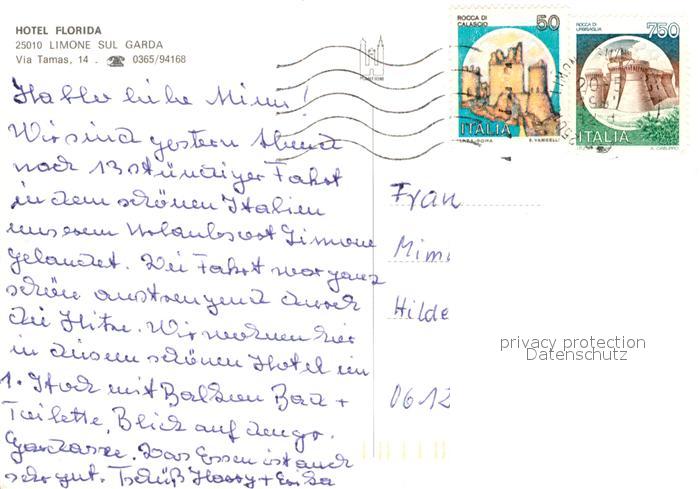 HOTEL FLORIDA
25010 LIMONE SUL GARDA
Via Tamas, 14 . ☎ 0365/94168
ROCCA DI CALASCIO
50
ITALIA
ROCCA DI URBISAGLIA
750
ITALIA
Hallo liebe Mimi!
Wir sind gestern Abend
nach 13 stündiger Fahrt
in dem schönen Italien
unserem Urlaubsort Limone
gelandet. Die Fahrt war ganz
schön anstrengend durch
die Hitze. Wir wohnen hier
in diesem schönen Hotel im
1. Stock mit Balkon Bad +
Toilette, Blick auf den gr.
Gardasee. Das Essen ist auch
sehr gut. Tschüß Harry + Erika
Frau
Mim
Hilde
0612
privacy protection
Datenschutz